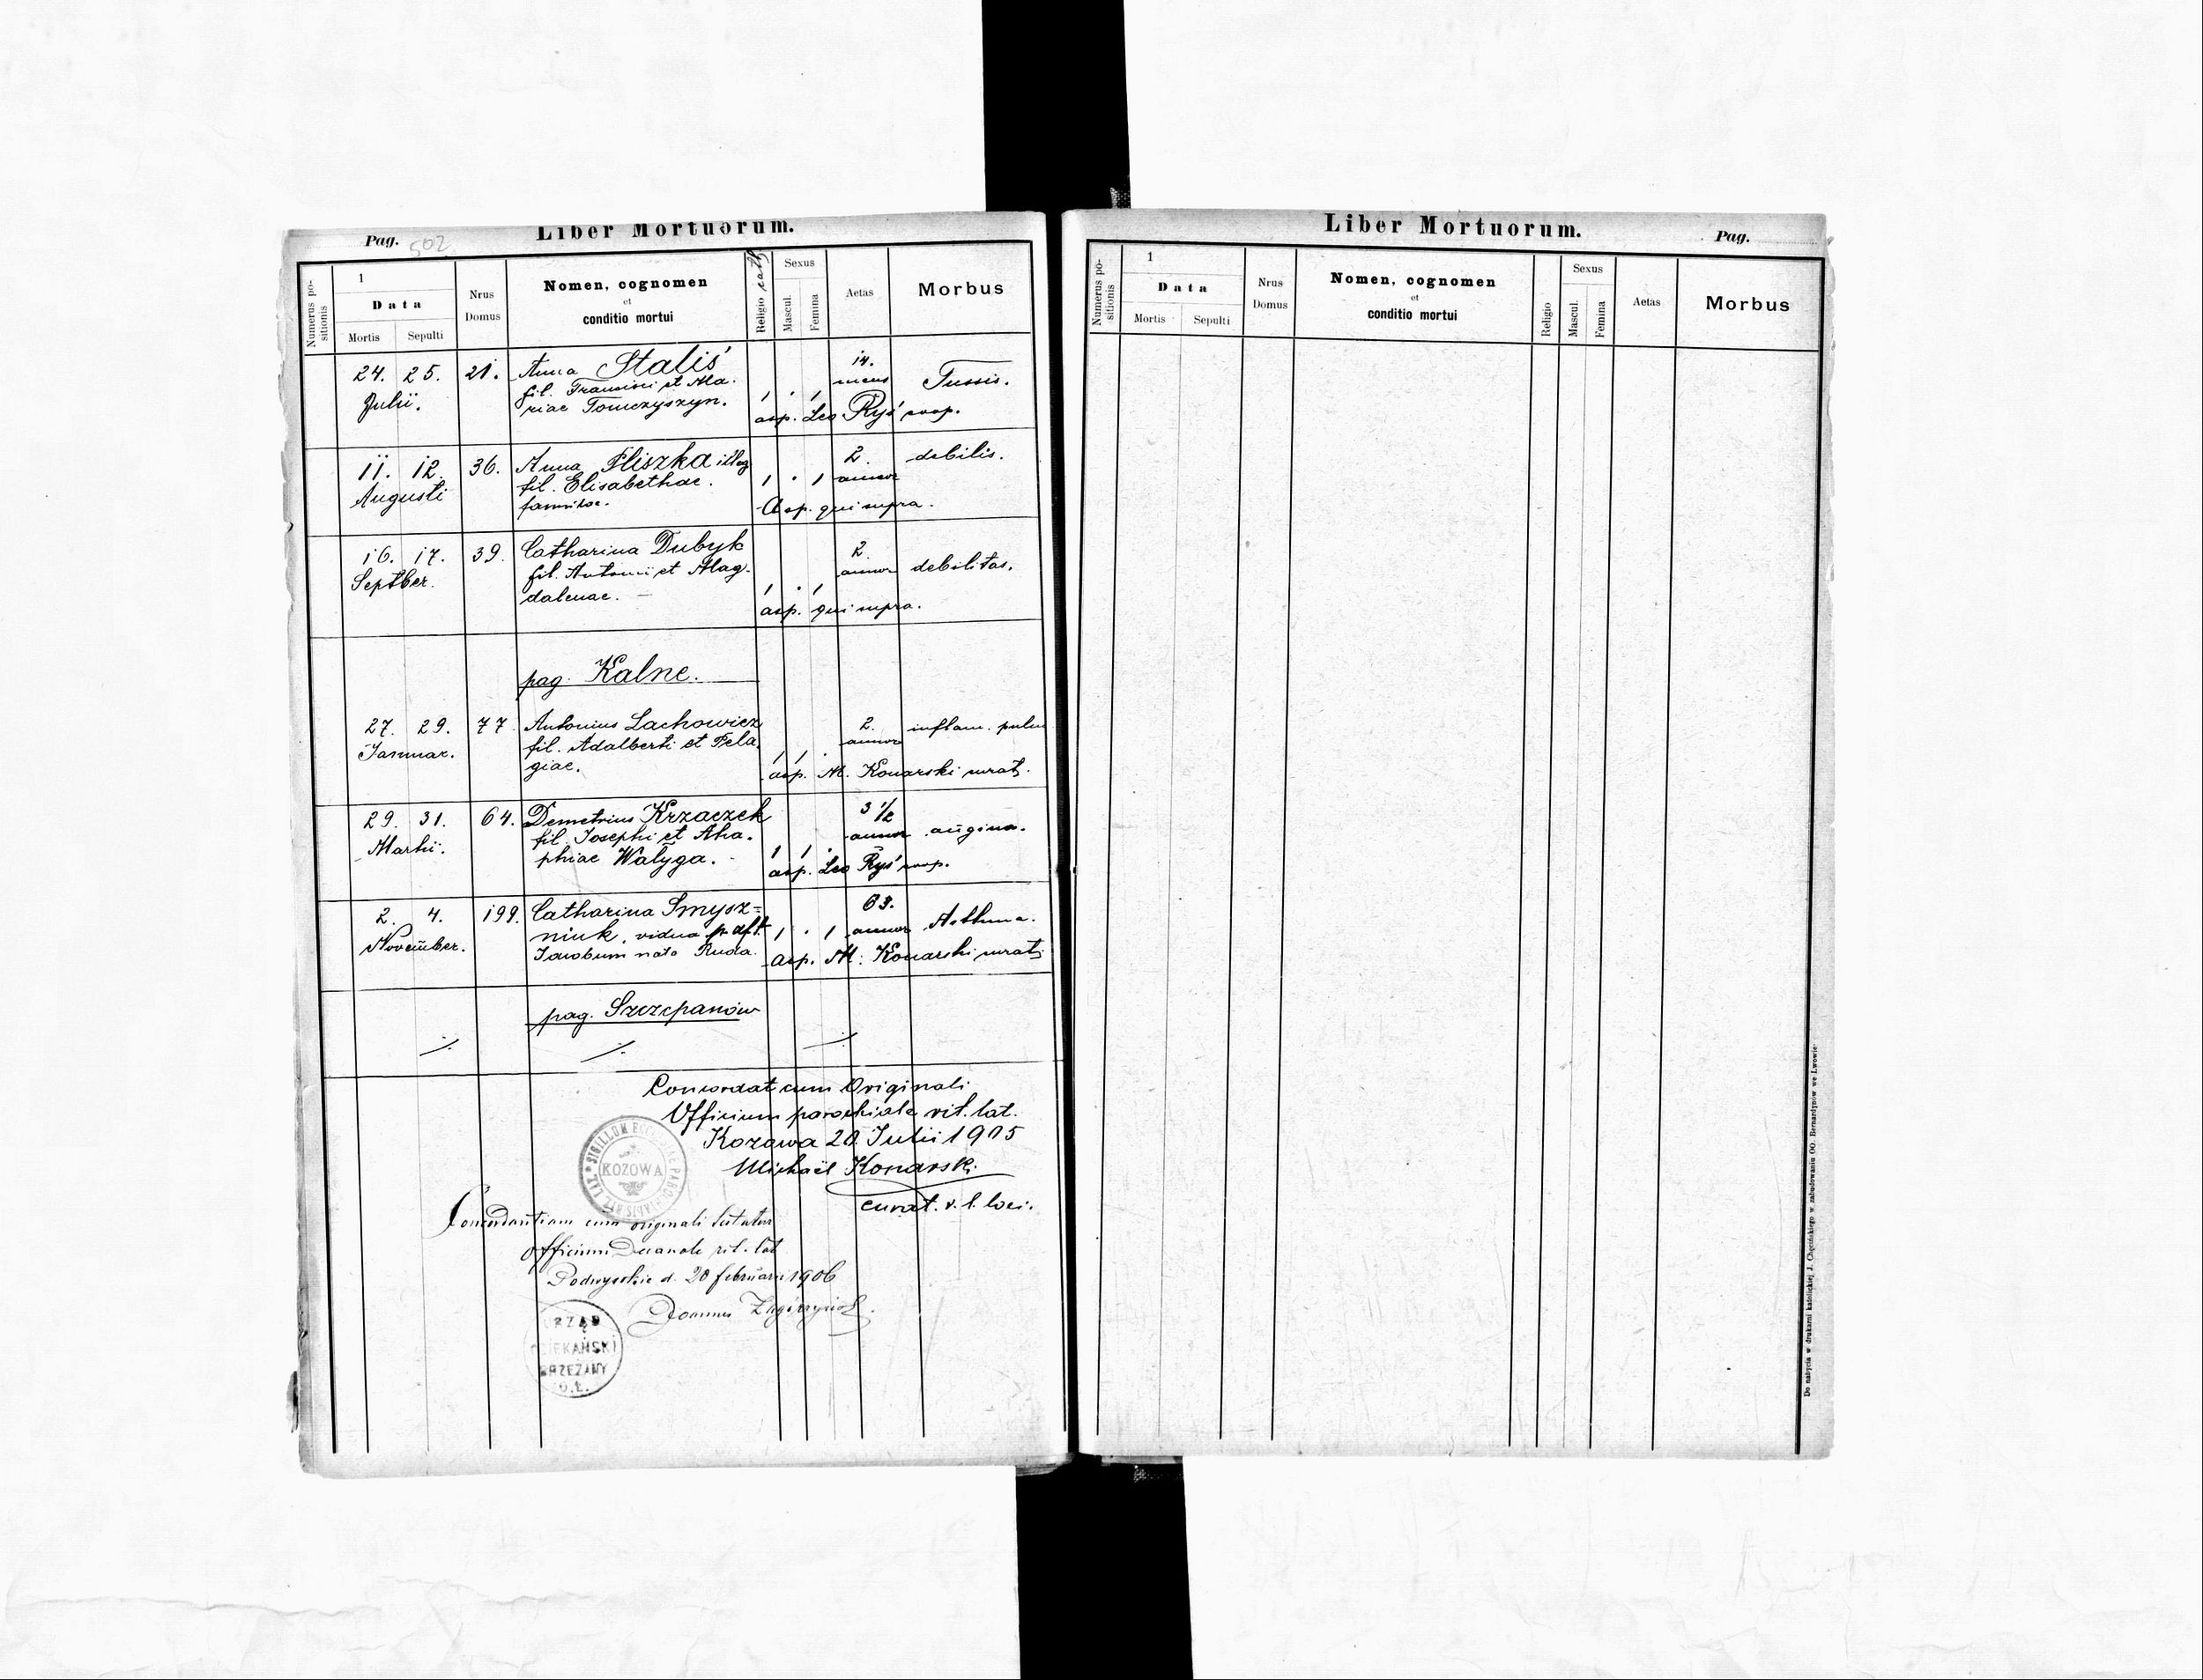 Pag. 502 Liber Mortuorum.
Numerus positionis
1
Data
Mortis Sepulti
Nrus Domus
Nomen, cognomen
et
conditio mortui
Religio cath.
Sexus
Mascul. Femina
Aetas
Morbus
24. 25. 21. Anna Staliś 14. Tussis.
Julii. fil. Francisci et Ma- mens
riae Tomczyszyn. 1 . 1
asp. Leo Ryś coop.
11. 12. 36. Anna Pliszka illeg 2. debilis.
Augusti fil. Elisabethae. 1 . 1 annor
famulae. Asp. qui supra.
16. 17. 39. Catharina Dubyk 2.
Septber. fil. Antonii et Mag- annor debilitas.
dalenae. 1 . 1
asp. qui supra.
pag. Kalne.
27. 29. 77. Antonius Lachowicz 2. inflam. pulm
Januar. fil. Adalberti et Pela- annor
giae. 1 1 .
asp. M. Konarski curat.
29. 31. 64. Demetrius Krzaczek 3 1/2
Martii. fil. Josephi et Aha- annor angina.
phiae Wałyga. 1 1 .
asp. Leo Ryś coop.
2. 4. 199. Catharina Smysz= 63.
November. niuk, vidua p. dft. 1 . 1 annor Asthma.
Jacobum nata Ruda. asp. M. Konarski curat.
pag. Szczepanów
./. ./. ./.
Concordat cum Originali
Officium parochiale rit. lat.
Kozowa 20. Julii 1905
Michaël Konarski
curat. r. l. loci.
SIGILLUM ECCLESIAE PAROCHIALIS RIT. LAT.
KOZOWA
Concordantiam cum originali testatur
Officium Decanale rit. lat
Podwysokie d. 20 februarii 1906
Joannes
URZĄD
DZIEKAŃSKI
BRZEŻANY
O.Ł.
Liber Mortuorum. Pag.
Numerus positionis
1
Data
Mortis Sepulti
Nrus Domus
Nomen, cognomen
et
conditio mortui
Religio
Sexus
Mascul. Femina
Aetas
Morbus
Do nabycia w drukarni katolickiej J. Chęcińskiego w zabudowaniu OO. Bernardynów we Lwowie